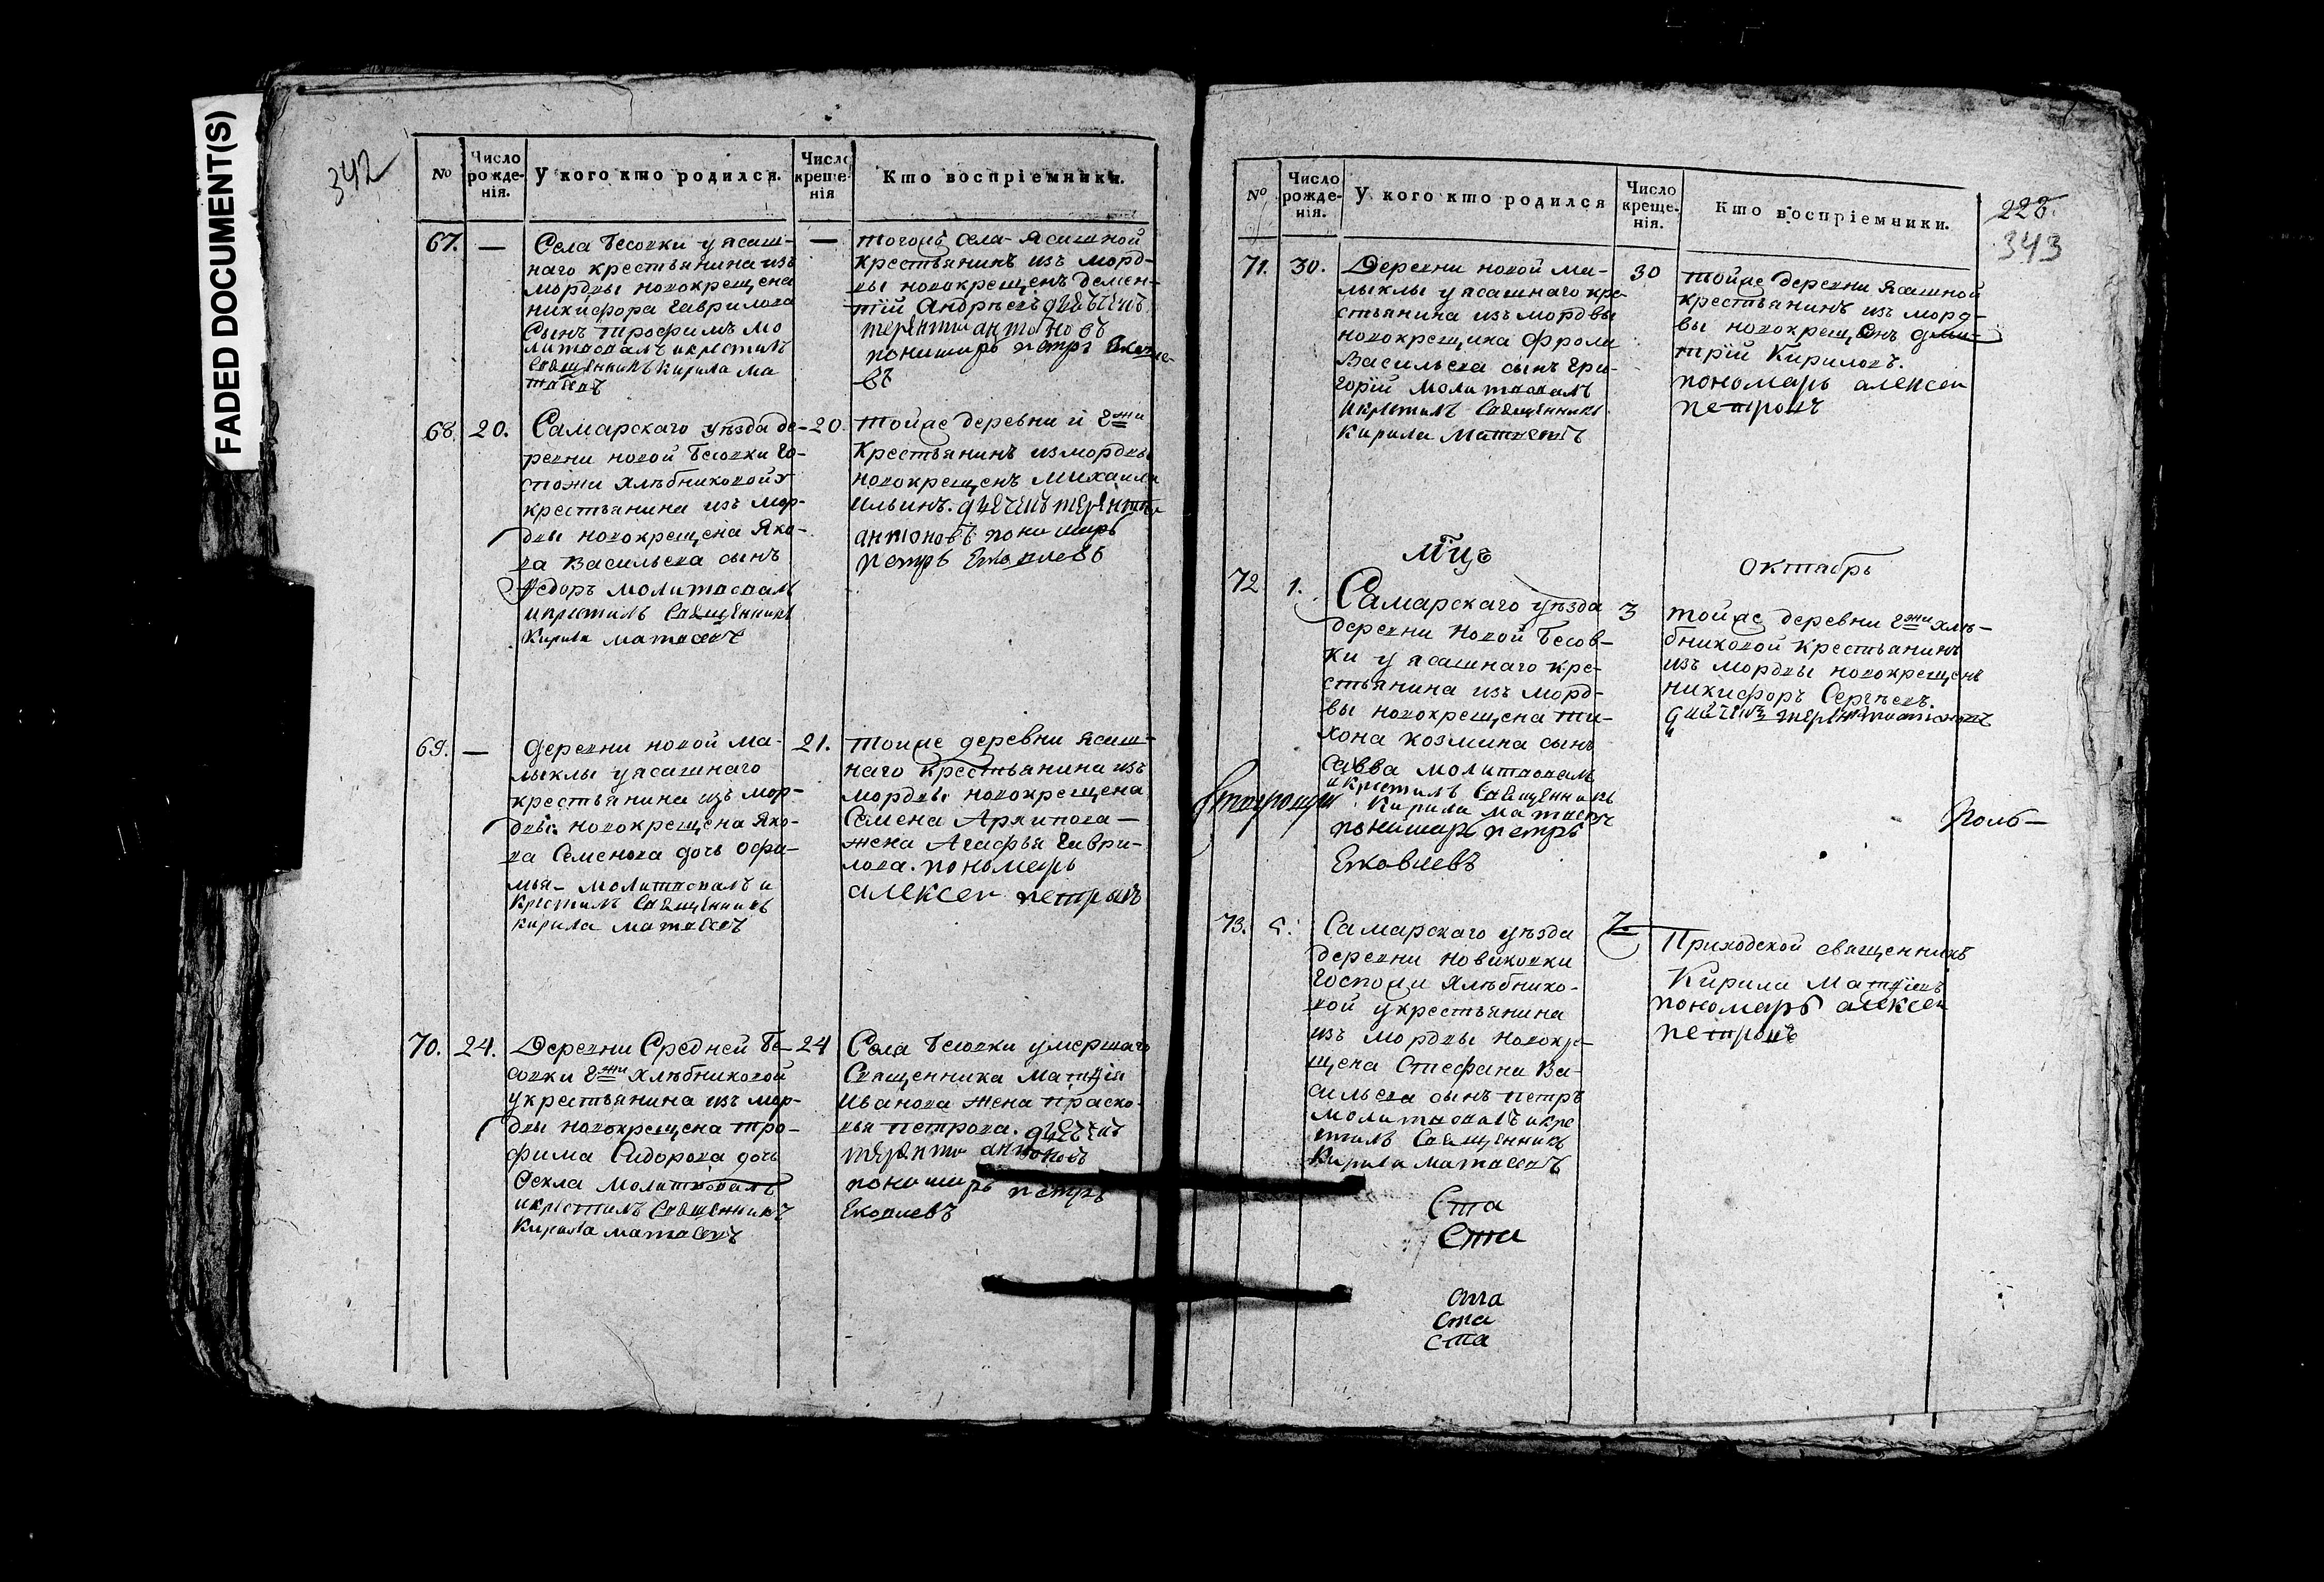 FADED DOCUMENT(S)
342
№
Число рожденія.
У кого кто родился.
Число крещенія
Кто воспріемники.
67.
—
Села Бесовки у ясаш-
наго крестьянина изъ
мордвы новокрещена
никифора Гаврилова
Сынъ трофимъ мо
литвовалъ и крестилъ
Священникъ Кирила Ма
твеевъ
—
тогожъ села ясашной
крестьянинъ изъ морд-
вы новокрещенъ демен-
тїй Андрѣевъ дьячекъ
терентии антоновъ
пономарь петръ
въ
68.
20.
Самарскаго уѣзда де-
ревни новой Бесовки Го-
спожи Хлѣбниковой у
крестьянина изъ мор-
двы новокрещена Яко-
ва Васильева сынъ
Ѳедоръ молитвовалъ
и крестилъ Священникъ
Кирила матвеевъ
20.
тойже деревни и Гжи
Крестьянинъ из мордвы
новокрещенъ Михаила
Ильинъ. дьячекъ терентии
антоновъ пономарь
петръ Ековлевъ
69.
—
деревни новой ма-
лыклы у ясашнаго
крестьянина изъ мор-
двы новокрещена Яко-
ва Семенова дочь Офи-
мья молитвовалъ и
Крестилъ Священникъ
Кирила матвеевъ
21.
тойже деревни ясаш-
наго крестьянина изъ
мордвы новокрещена
Семена Архипова —
жена Агафья Гаври-
лова. пономарь
алексеи петровъ
70.
24.
Деревни Средней Бе-
совки Гжи Хлѣбниковой
у крестьянина изъ мор-
двы новокрещена тро-
фима Сидорова дочь
Ѳекла молитвовалъ
и крестилъ Священникъ
Кирила матвеевъ
24
Села Бесовки умершаго
Священника Матѳїя
Иванова жена праско-
вья петрова. дьячекъ
терентии антоновъ
пономарь петръ
Ековлевъ
№
Число рожденія.
У кого кто родился
Число крещенія.
Кто воспріемники.
343
71.
30.
Деревни новой ма-
лыклы у ясашнаго кре-
стьянина изъ мордвы
новокрещена фрола
Васильева сынъ Гри-
горїй молитвовалъ
и крестилъ Священникъ
Кирила Матвеевъ
30
тойже деревни ясашной
крестьянинъ изъ морд-
вы новокрещенъ дми-
трїй Кириловъ.
пономарь алексеи
петровъ
Мцъ
октябрь
72
1.
Самарскаго уѣзда
деревни новой Бесов-
ки у ясашнаго кре-
стьянина изъ морд-
вы новокрещена ти-
хона козмина сынъ
Савва молитвовалъ
и крестилъ Священникъ
Кирила Матвеевъ
пономарь петръ
Ековлевъ
3
тойже деревни Гжи Хлѣ-
бниковой крестьянинъ
изъ мордвы новокрещенъ
никифоръ Сергѣевъ.
дьячекъ терентии антоновъ
73.
5.
Самарскаго уѣзда
деревни новиковки
Госпожи Хлѣбнико-
вой у крестьянина
изъ мордвы новокре-
щена Стефана Ва-
сильева сынъ петръ
молитвовалъ и кре
стилъ Священникъ
Кирила матвеевъ
7
Приходской священникъ
Кирила Матѳїевъ
пономарь алексеи
петровъ
Ста
Ста
Ста
Ста
Ста